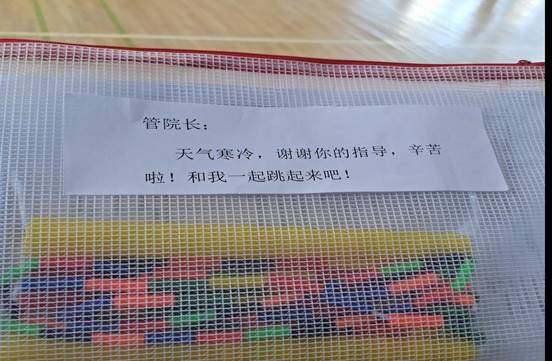 管院长：
天气寒冷，谢谢你的指导，辛苦
啦！和我一起跳起来吧！